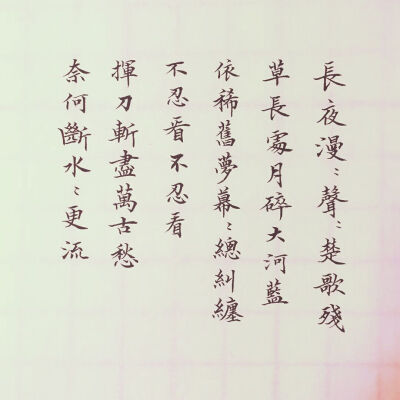 長夜漫〻聲〻楚歌殘
草長處月碎大河藍
依稀舊夢幕〻總糾纏
不忍看不忍看
揮刀斬盡萬古愁
奈何斷水〻更流